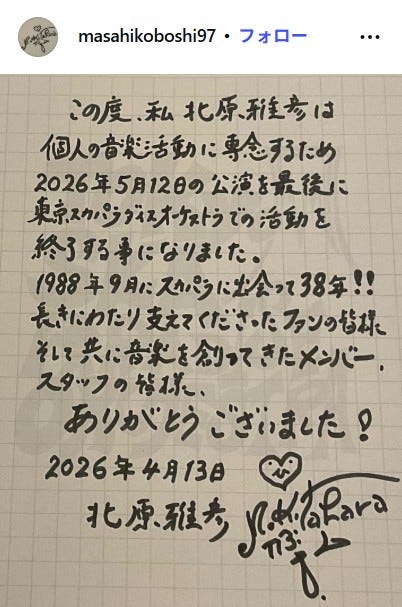 masahikoboshi97 • フォロー
この度、私 北原雅彦は
個人の音楽活動に専念するため
2026年5月12日の公演を最後に
東京スカパラダイスオーケストラでの活動を
終了する事になりました。
1988年9月にスカパラに出会って38年!!
長きにわたり支えてくださったファンの皆様、
そして共に音楽を創ってきたメンバー、
スタッフの皆様、
ありがとうございました!
2026年4月13日
北原雅彦